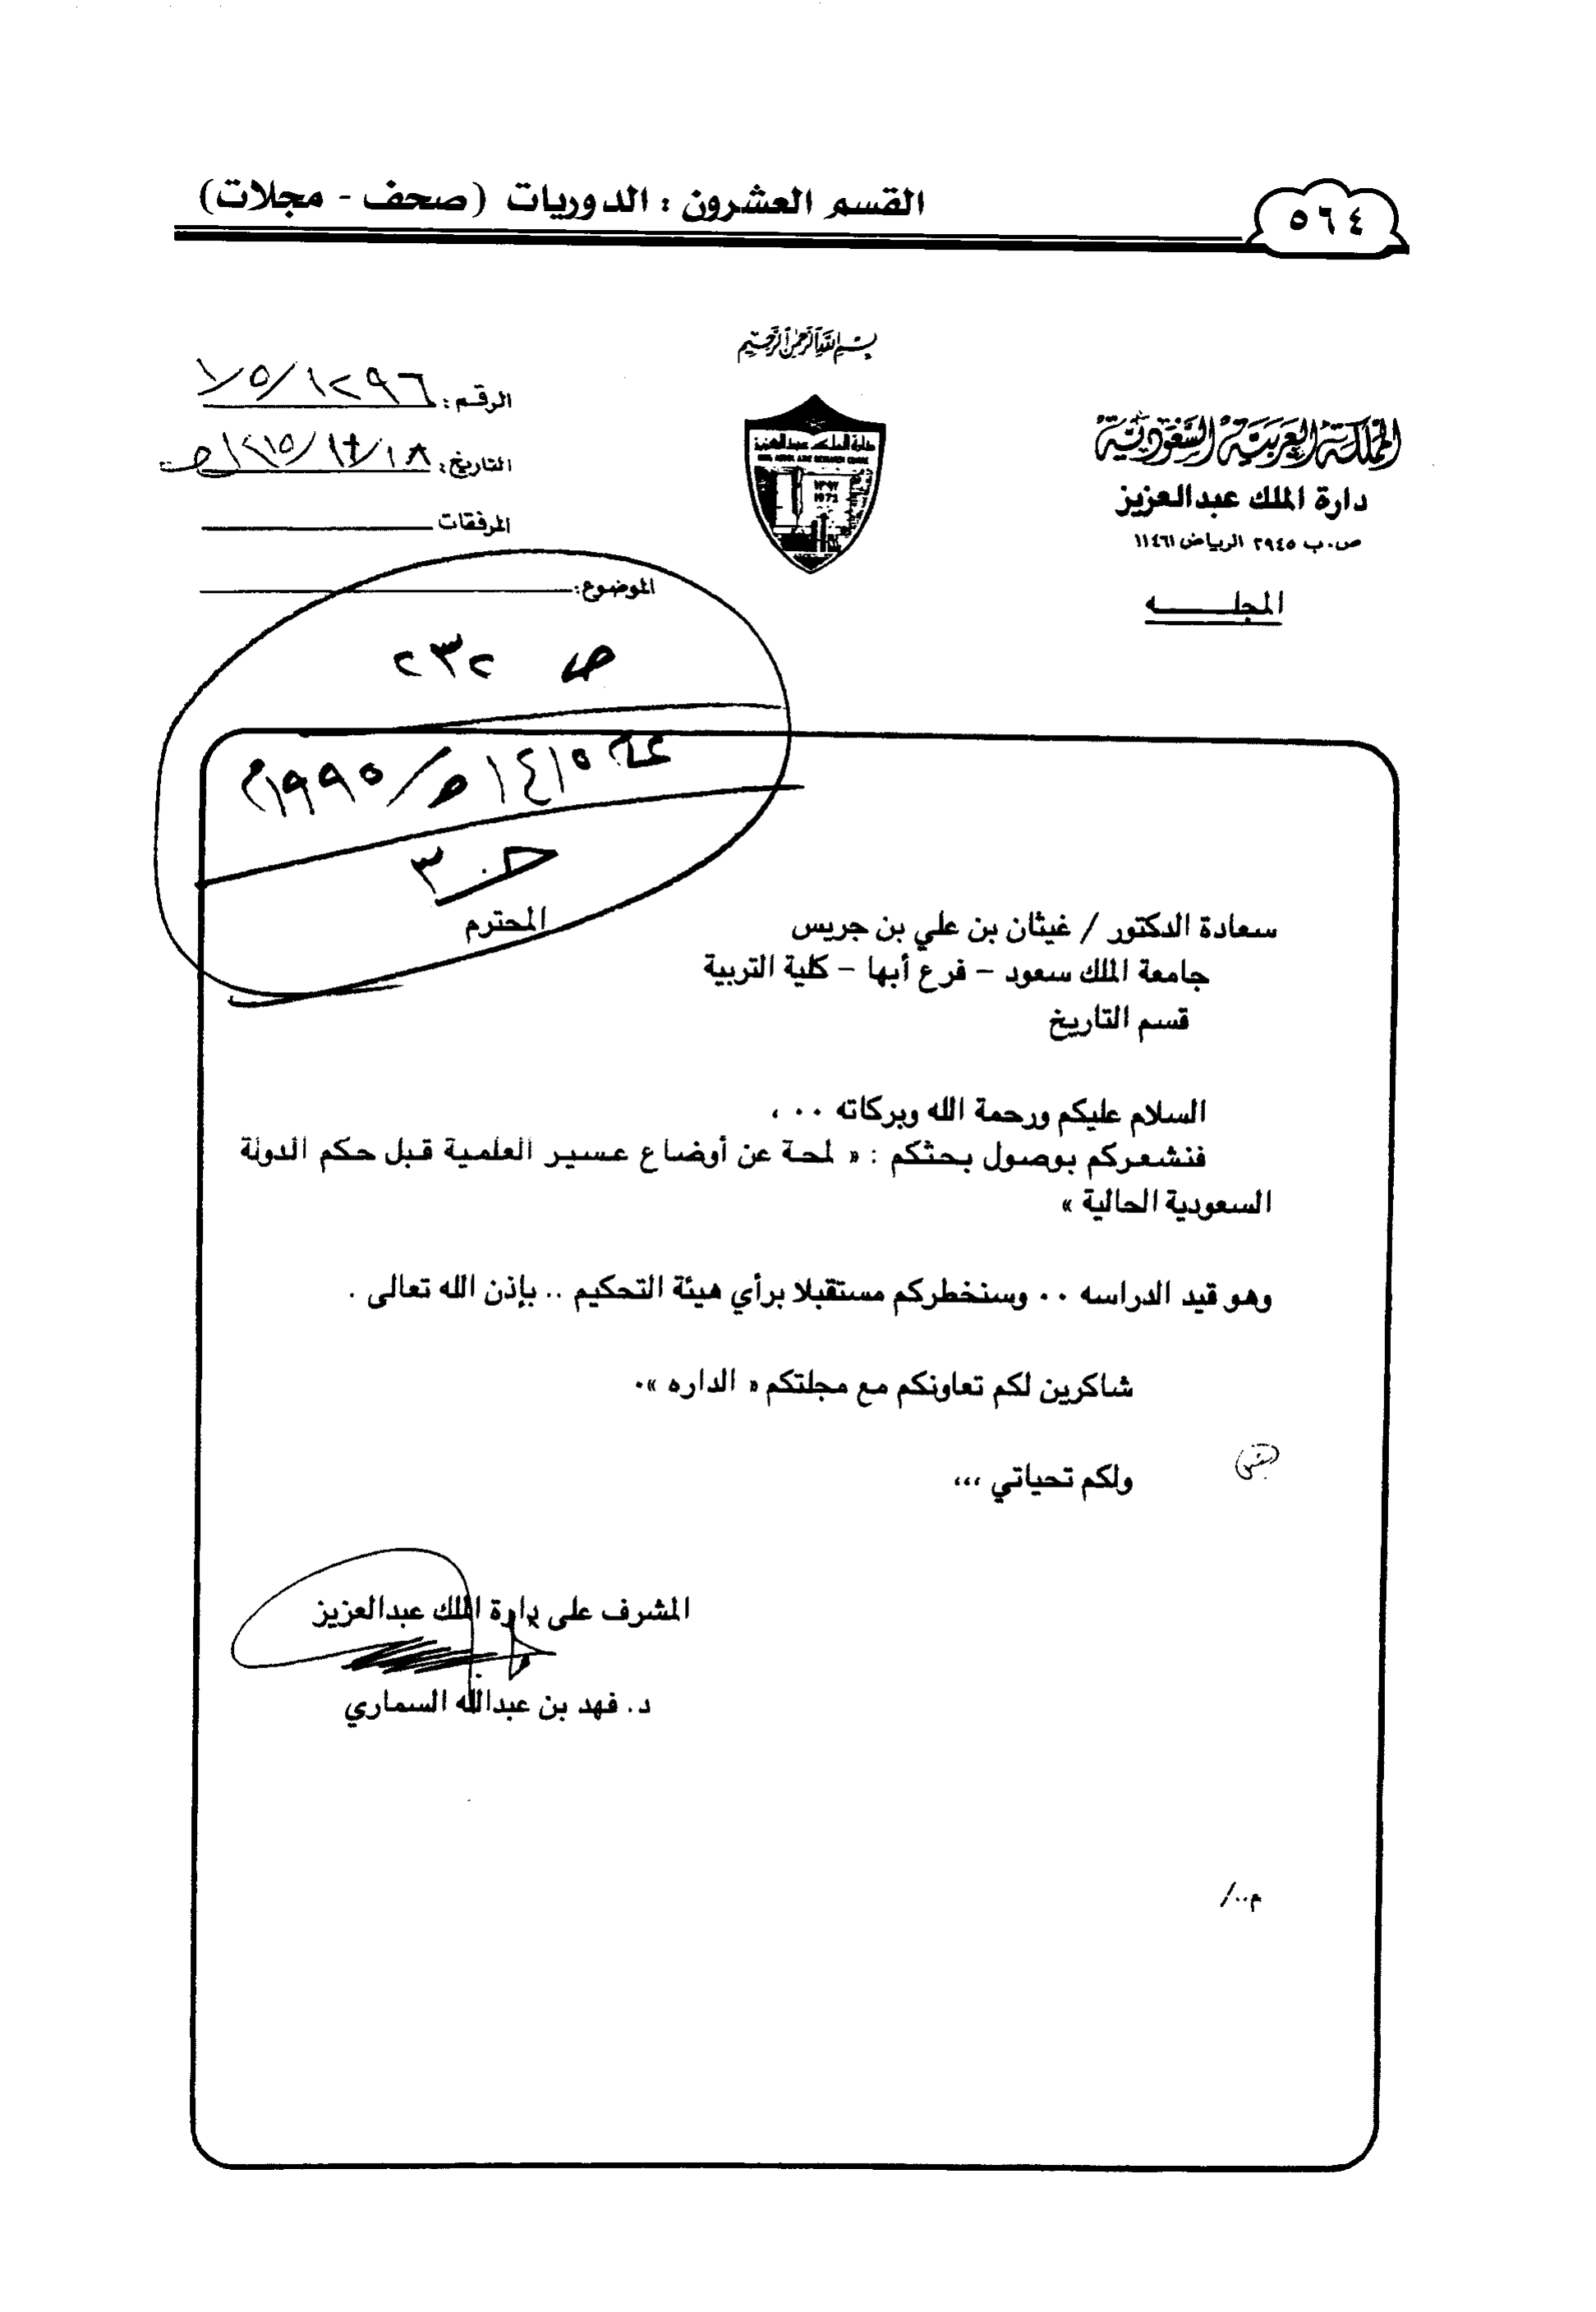 ٥٦٤
القسم العشرون : الدوريات (صحف - مجلات)
بسم الله الرحمن الرحيم
المملكة العربية السعودية
دارة الملك عبدالعزيز
ص.ب ٢٩٤٥ الرياض ١١٤٦١
المجلـــــه
دارة الملك عبدالعزيز
١٣٩٢
1972
الرقـم : ١٢٩٦/٥/١
التاريخ : ١٨/١٢/١٤١٥هـ
المرفقات
الموضوع:
ص ٢٣٢
عام ١٤١٥هـ/١٩٩٥م
حـ ٣
سعادة الدكتور / غيثان بن علي بن جريس المحترم
جامعة الملك سعود – فرع أبها – كلية التربية
قسم التاريخ
السلام عليكم ورحمة الله وبركاته ٠٠ ،
فنشعركم بوصول بحثكم : « لمحة عن أوضاع عسير العلمية قبل حكم الدولة
السعودية الحالية »
وهو قيد الدراسه ٠٠ وسنخطركم مستقبلا برأي هيئة التحكيم .. بإذن الله تعالى .
شاكرين لكم تعاونكم مع مجلتكم « الداره »٠
ولكم تحياتي ،،،
المشرف على دارة الملك عبدالعزيز
د. فهد بن عبدالله السماري
م../